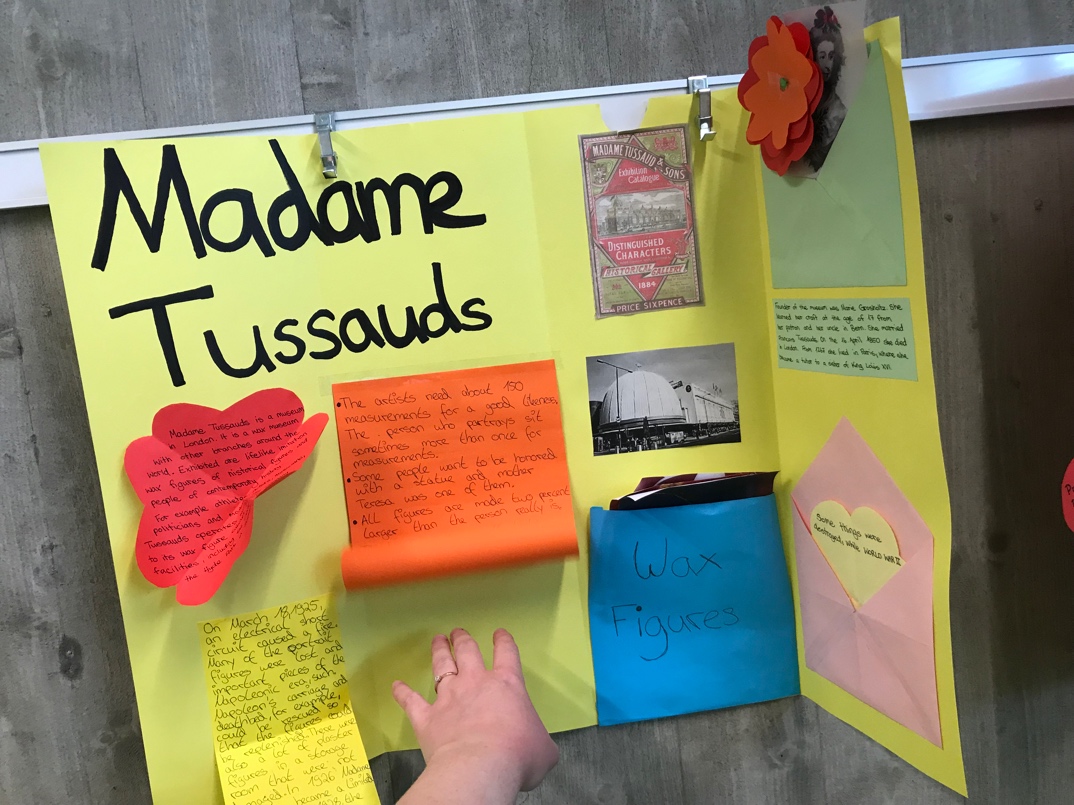 Madame
Tussauds
MADAME TUSSAUD & SONS
Exhibition
Catalogue
DISTINGUISHED
CHARACTERS
HISTORICAL GALLERY
1884
PRICE SIXPENCE
Madame Tussauds is a museum
in London. It is a wax museum
with other branches around the
world. Exhibited are lifelike
wax figures of historical figures and
people of contemporary
For example athletes
politicians and
Tussauds operates
to its wax figure
facilities, including
the
• The artists need about 150
measurements for a good likeness.
The person who portrays sit
sometimes more than once for
measurements.
• Some people want to be honored
with a statue and mother
Teresa was one of them.
• ALL figures are made two percent
Larger than the person really is.
On March 18, 1925,
an electrical short
circuit caused a fire.
Many of the portrait
figures were lost and
important pieces of the
Napoleonic era, such
Napoleon's carriage and
deathbed, for example,
could be rescued so
that the figures could
be replenished. There were
also a lot of plaster
figures in a storage
room that were not
damaged. In 1926 Madame
became a Limited
the
Wax
Figures
Founder of the museum was Marie Grosholtz. She
learned her craft at the age of 17 from
her patron and her uncle in Bern. She married
François Tussauds. On the 16 April 1850 she died
in London. From she lived in where she
became a tutor to a sister of King Louis XVI.
Some things were
destroyed, while WORLD WAR II